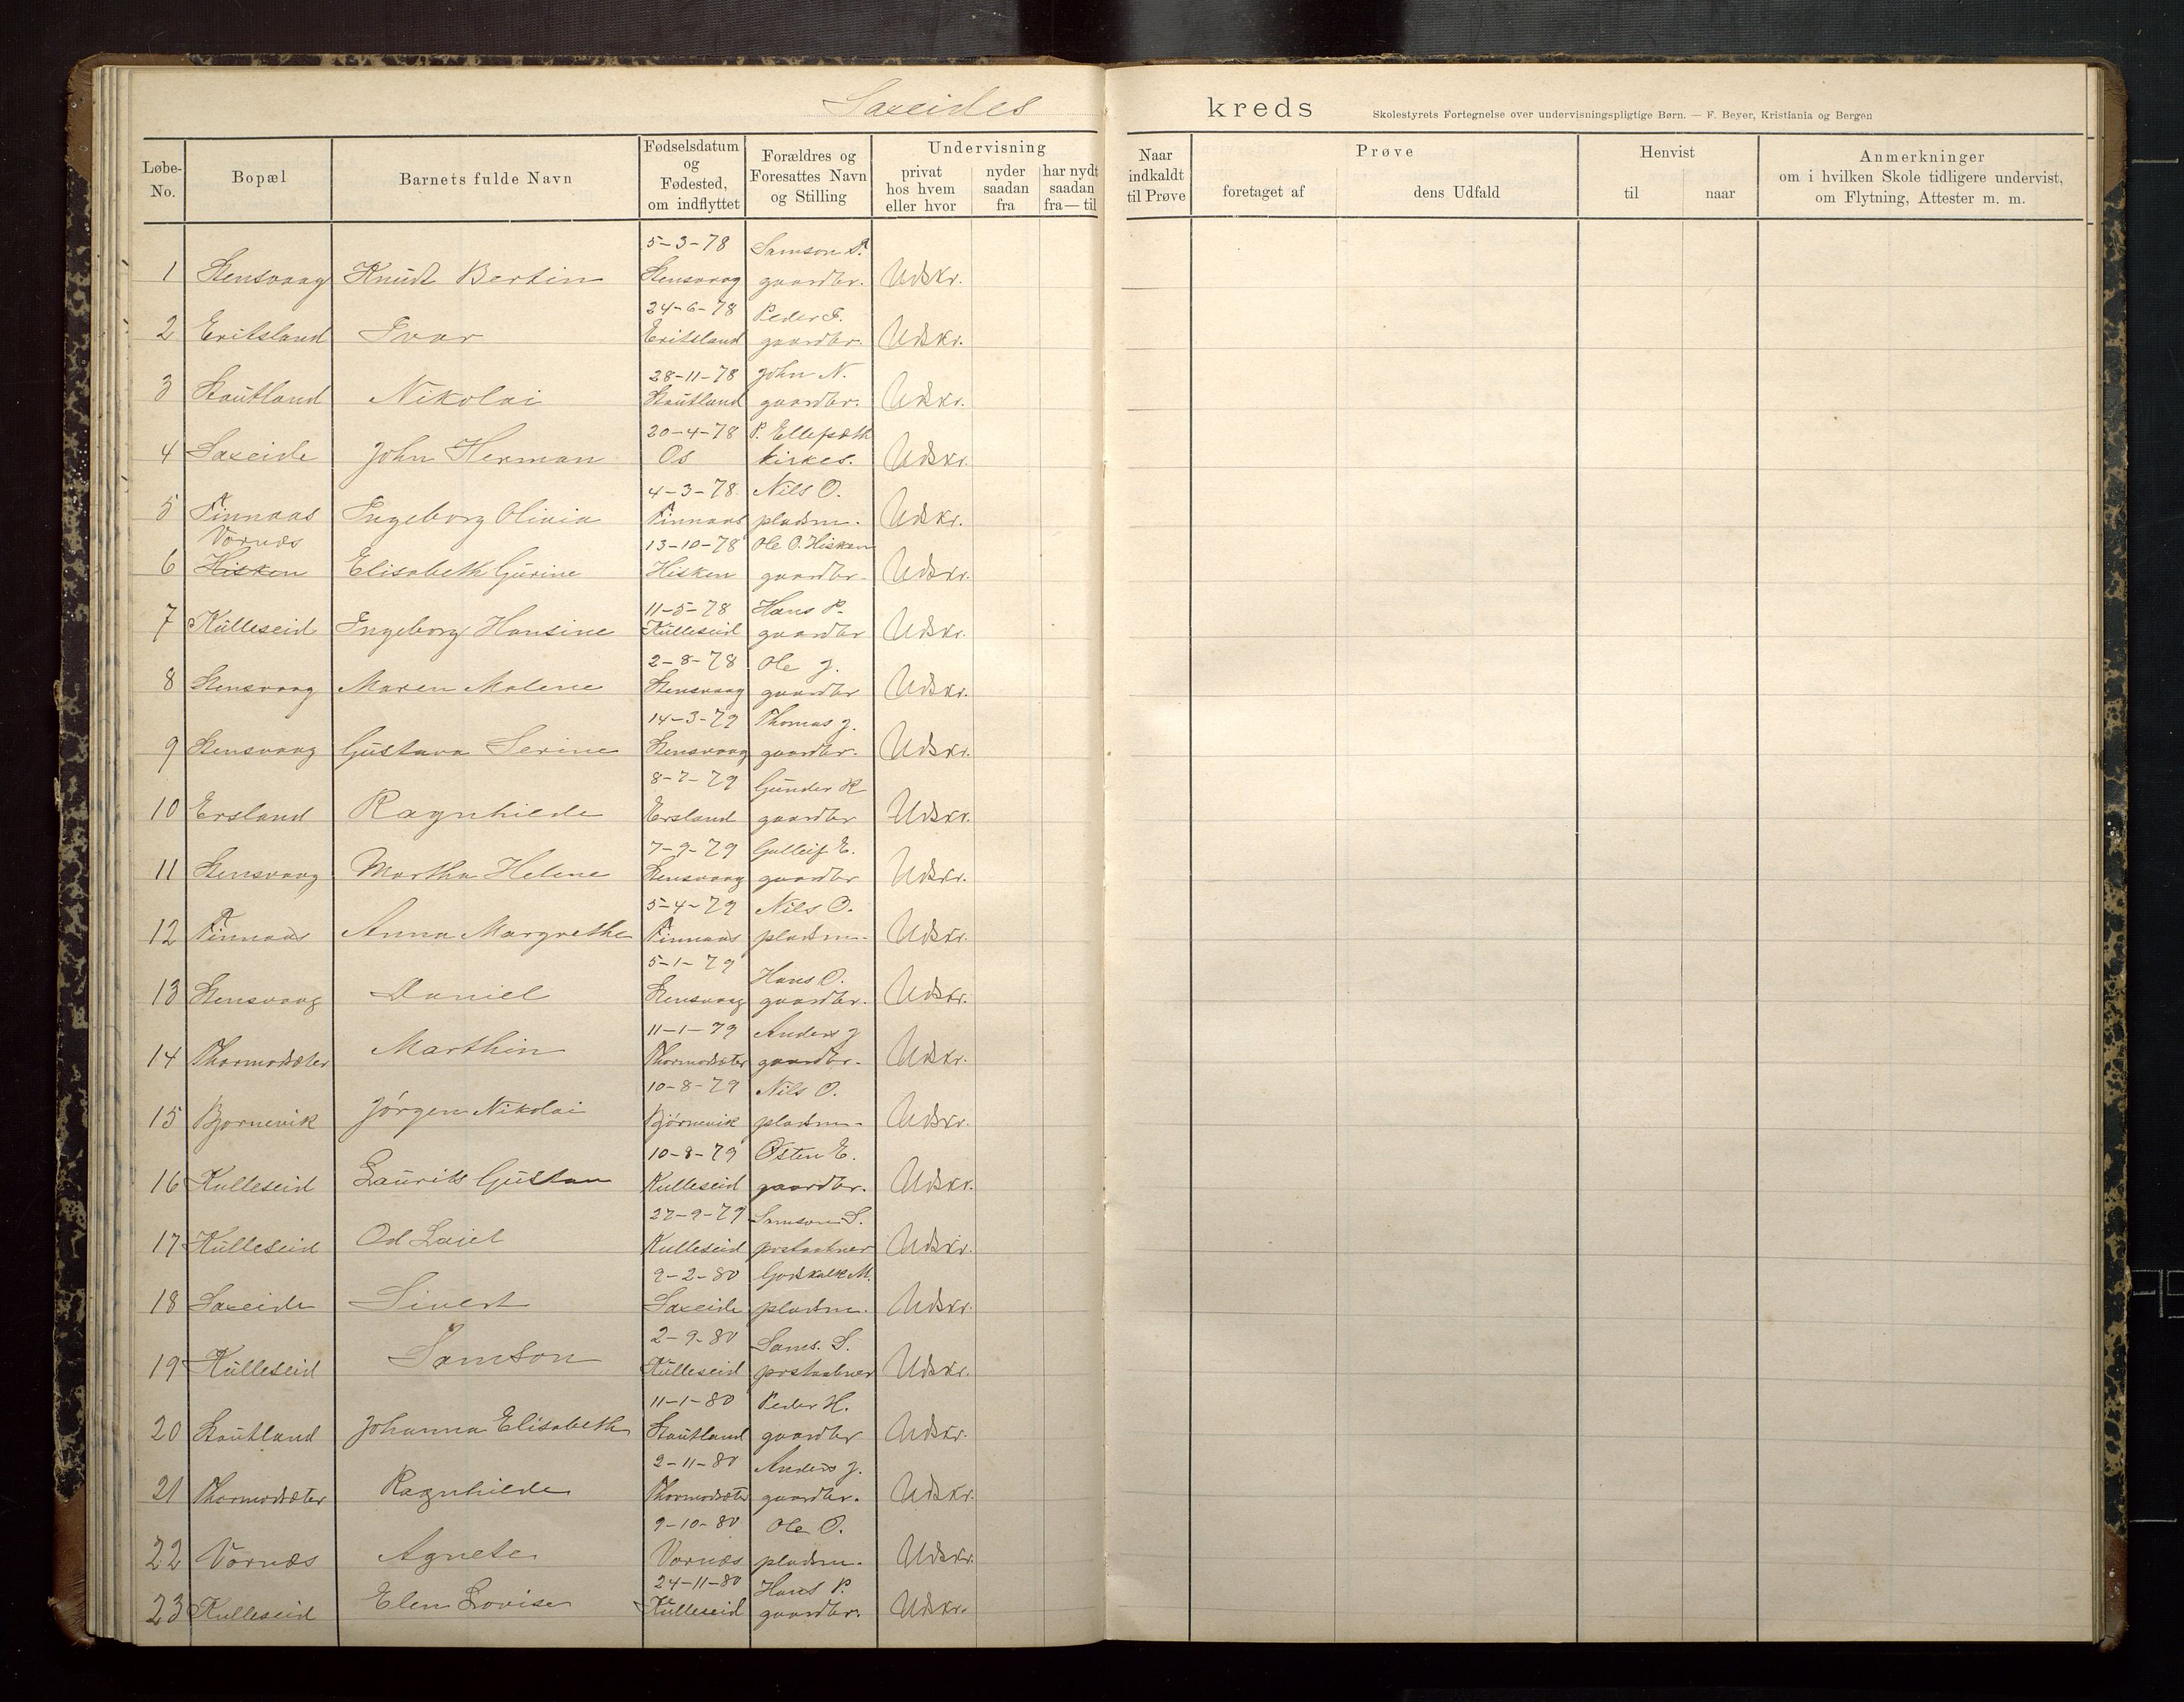 Saxeides kreds
Skolestyrets Fortegnelse over undervisningspligtige Børn. — F. Beyer, Kristiania og Bergen
Løbe-No. Bopæl Barnets fulde Navn Fødselsdatum og Fødested, om indflyttet Forældres og Foresattes Navn og Stilling Undervisning privat hos hvem eller hvor nyder saadan fra har nydt saadan fra—til Naar indkaldt til Prøve Prøve foretaget af dens Udfald Henvist til naar Anmerkninger om i hvilken Skole tidligere undervist, om Flytning, Attester m. m.
5-3-78 Samson P.
1 Stensvaag Knudt Bertin Stensvaag gaardbr. Udskr.
24-6-78 Peder F.
2 Eritsland Ivar Eritsland gaardbr. Udskr.
28-11-78 John N.
3 Stautland Nikolai Stautland gaardbr. Udskr.
20-4-78 P. Ellefsæth
4 Saxeide John Herman Os kirkes. Udskr.
4-3-78 Nils O.
5 Finnaas Ingeborg Olivia Finnaas pladsm. Udskr.
Vornæs 13-10-78 Ole O. Hisken
6 Hisken Elisabeth Gurine Hisken gaardbr. Udskr.
11-5-78 Hans P.
7 Kulleseid Ingeborg Hansine Kulleseid gaardbr Udskr.
2-8-78 Ole J.
8 Stensvaag Maren Malene Stensvaag gaardbr Udskr.
14-3-79 Thomas J.
9 Stensvaag Gustava Serine Stensvaag gaardbr. Udskr.
8-7-79 Gunder K
10 Ersland Ragnhilde Ersland gaardbr Udskr.
7-9-79 Gulleif E.
11 Stensvaag Martha Helene Stensvaag gaardbr Udskr.
5-4-79 Nils O.
12 Finnaas Anna Margrethe Finnaas pladsm. Udskr.
5-1-79 Hans O.
13 Stensvaag Daniel Stensvaag gaardbr. Udskr.
11-1-79 Anders J
14 Thormodsæter Marthin Thormodsæter gaardbr. Udskr.
10-8-79 Nils O.
15 Bjornevik Jørgen Nikolai Bjørnevik pladsm. Udskr.
10-8-79 Østen E.
16 Kulleseid Laurits Gustav Kulleseid gaardbr. Udskr.
27-9-79 Samson S.
17 Kulleseid Od Kulleseid postaabner Udskr.
9-2-80 Godskalk M.
18 Saxeide Sivert Saxeide pladsm. Udskr.
2-9-80 Sams. S.
19 Kulleseid Samson Kulleseid postaabner Udskr.
11-1-80 Peder H.
20 Stautland Johanna Elisabeth Stautland gaardbr Udskr.
2-11-80 Anders J.
21 Thormodsæter Ragnhilde Thormodsæter gaardbr. Udskr.
9-10-80 Ole O.
22 Vornæs Agnete Vornæs pladsm. Udskr.
24-11-80 Hans P.
23 Kulleseid Elen Lovise Kulleseid gaardbr. Udskr.